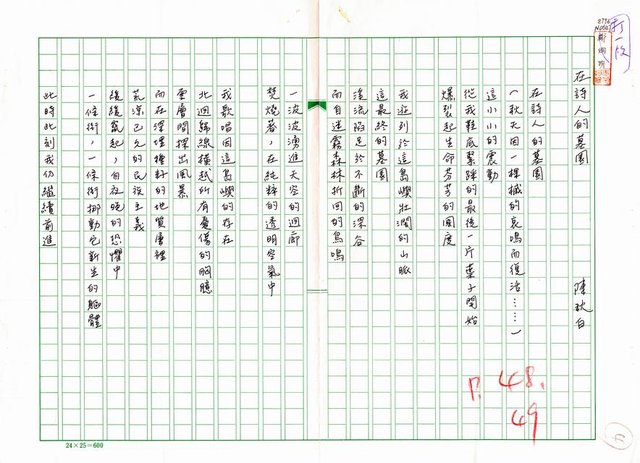 打一份
在詩人的墓園
陳秋白
在詩人的墓園
(秋天因一棵楓的哀鳴而復活……)
這小小的震動
從我鞋底緊踩的最後一片葉子開始
爆裂起生命芬芳的風度
我遊列於這島嶼壯濶的山脈
這最終的墓園
溪流陷足於不斷的深谷
而自迷霧森林折回的鳥鳴
一波波湧進天空的迴廊
焚燒著,在純粹的透明空氣中
我歌唱因這島嶼的存在
北迴歸線橫越所有憂傷的胸膛
雲層間探出風暴
而在深埋種籽的地質層裡
荒涼已久的民族主義
緩緩竄起,自夜晚的恐懼中
一條街,一條街挪動它新生的軀體
此時此刻我仍繼續前進
P. 48.
49
24×25=600